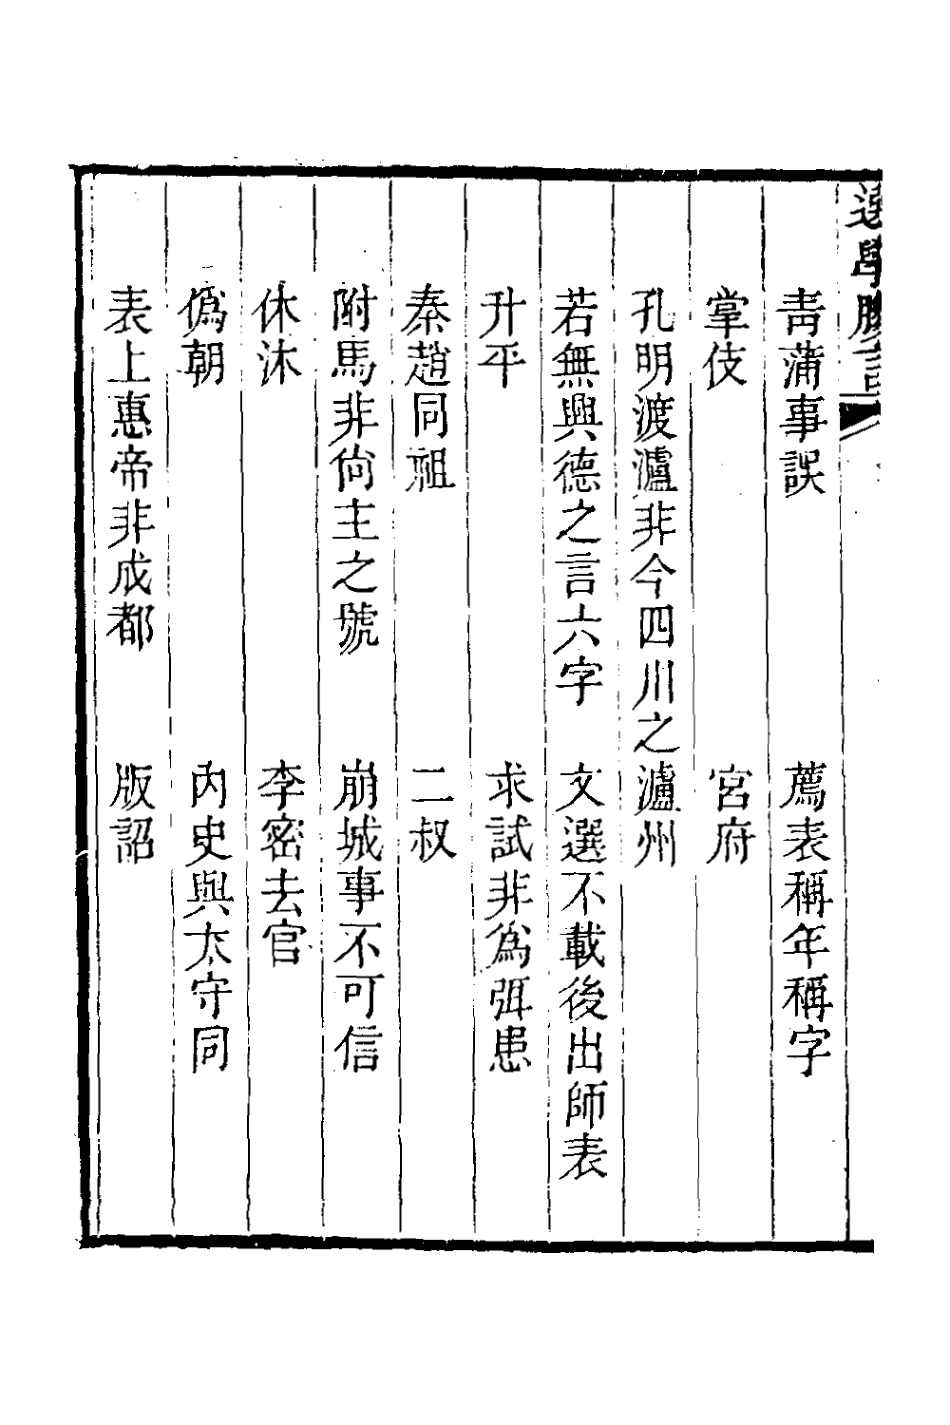 選學膠言
青蒲事誤　薦表稱年稱字
掌伎　宮府
孔明渡瀘非今四川之瀘州
若無興德之言六字　文選不載後出師表
升平　求試非爲弭患
秦趙同祖　二叔
駙馬非尙主之號　崩城事不可信
休沐　李密去官
僞朝　內史與太守同
表上惠帝非成都　版詔